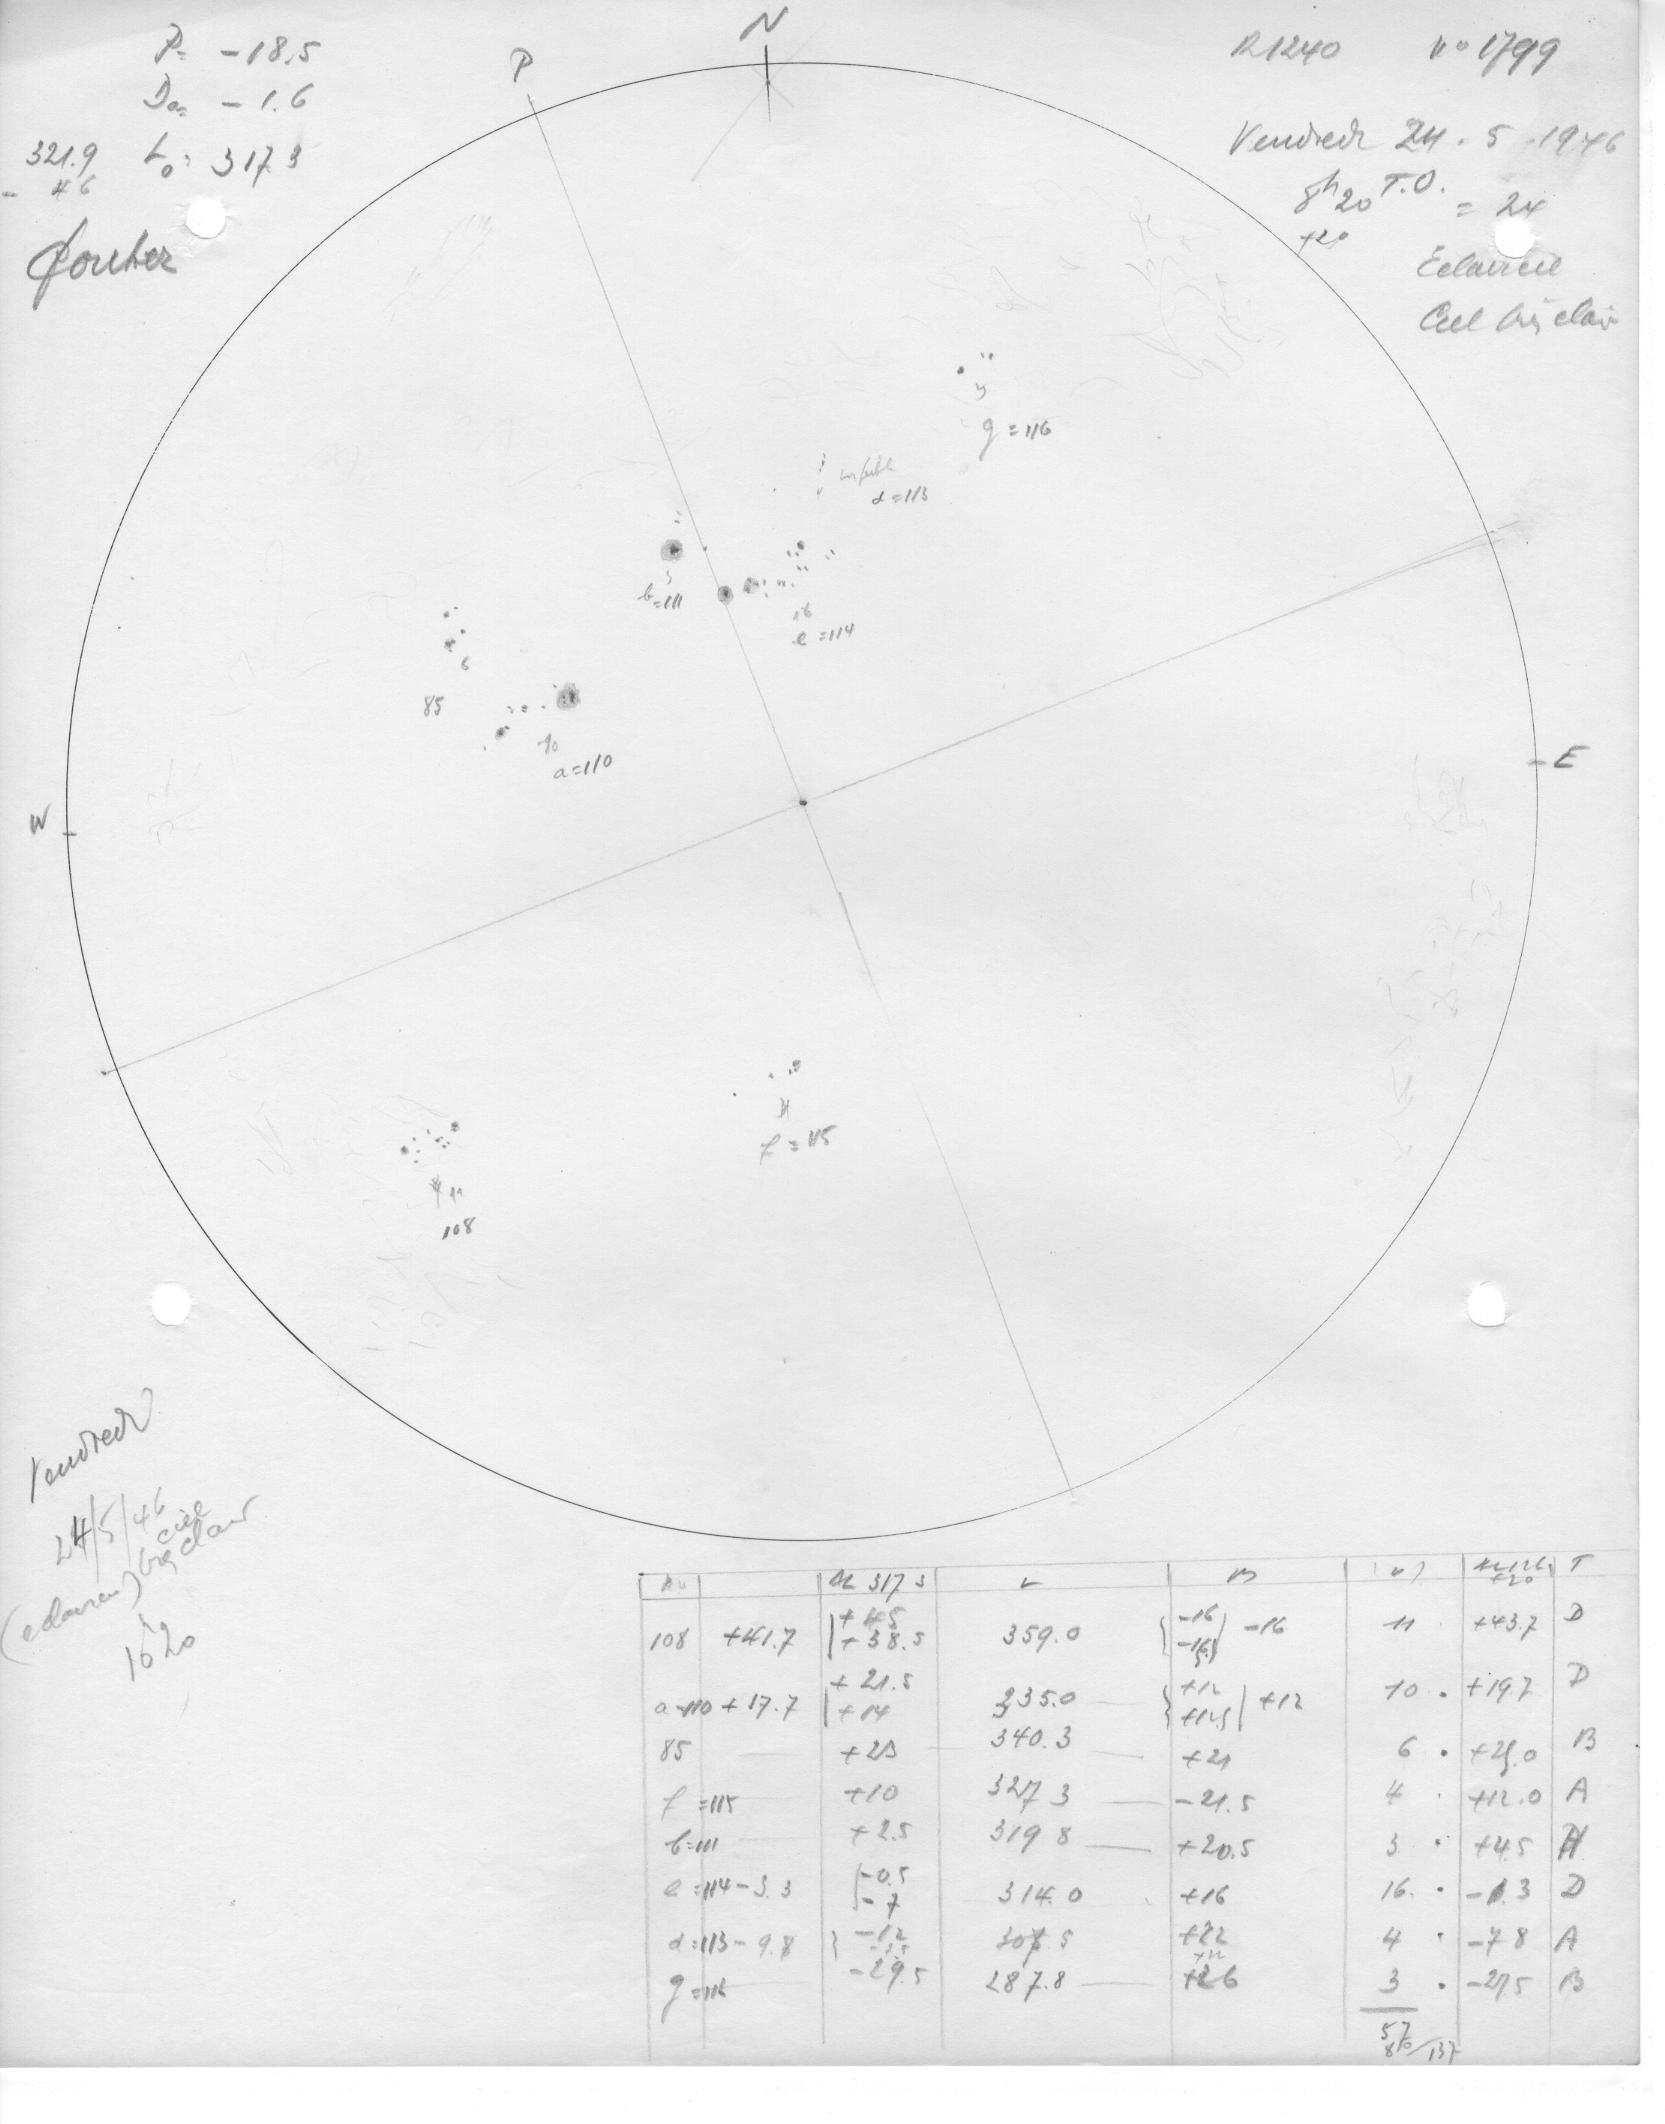 P= -18.5
D₀= -1.6
321.9 L₀: 317.3
- 4.6
N
P
R1240 n° 1799
Vendredi 24.5.1946
8h20 T.O. = 24
+20
Eclaircie
Ciel très clair
3
g=116
d=113
3
b=111
16
e=114
6
85
10
a=110
W
E
11
f=115
11
108
Vendredi
24/5/46
ciel
(eclaircie) très clair
16h20
317.3 L B T
108 +41.7 +45 359.0 -16 -16 11 +43.7 D
+38.5
a=110 +17.7 +21.5 335.0 +12 +12 10 +19.7 D
+14 +12.5
85 +23 340.3 +21 6 +25.0 B
f=115 +10 327.3 -21.5 4 +12.0 A
b=111 +2.5 319.8 +20.5 3 +4.5 H
e=114 -3.3 -0.5 314.0 +16 16 -1.3 D
-7
d=113 -9.8 -12 307.5 +22 4 -7.8 A
g=116 -29.5 287.8 +26 3 -27.5 B
57
8/137